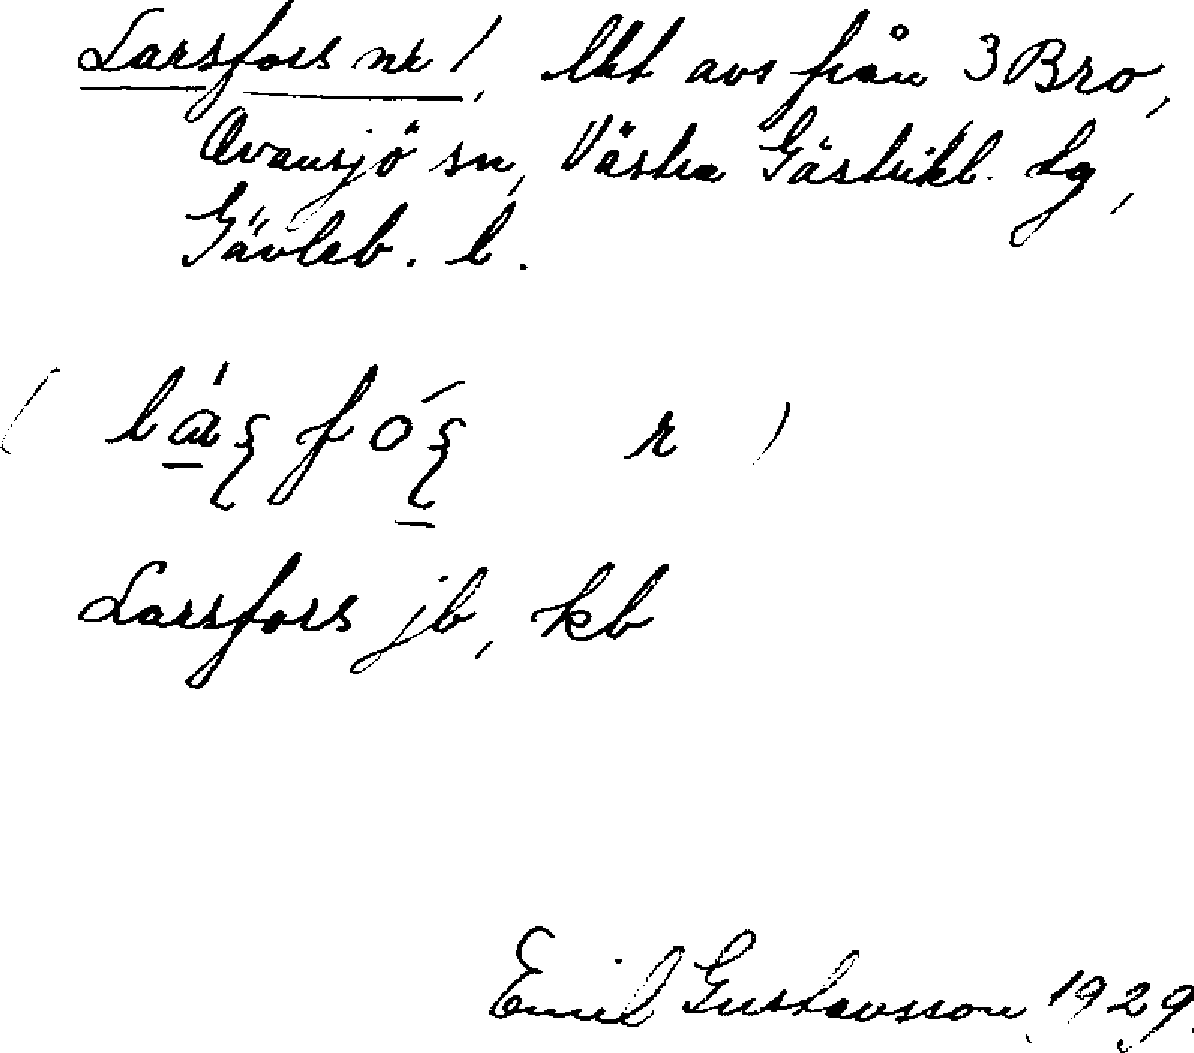 Larsfors nr 1, lht avs från 3 Bro,
Ovansjö sn, Västra Gästrikl. tg,
Gävleb. l.
( r )
Larsfors jb, kb
Emil Gustavsson 1929.